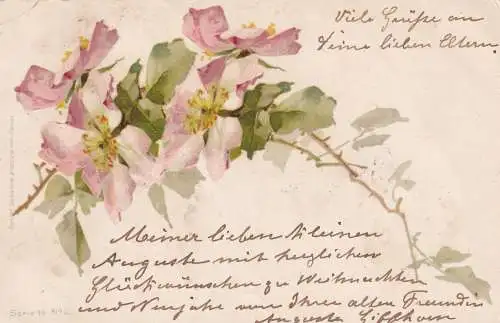 Viele Grüße an
Deine lieben Eltern.
Meiner lieben kleinen
Auguste mit herzlichen
Glückwünschen zu Weihnachten
und Neujahr von Ihrer alten Freundin
Auguste